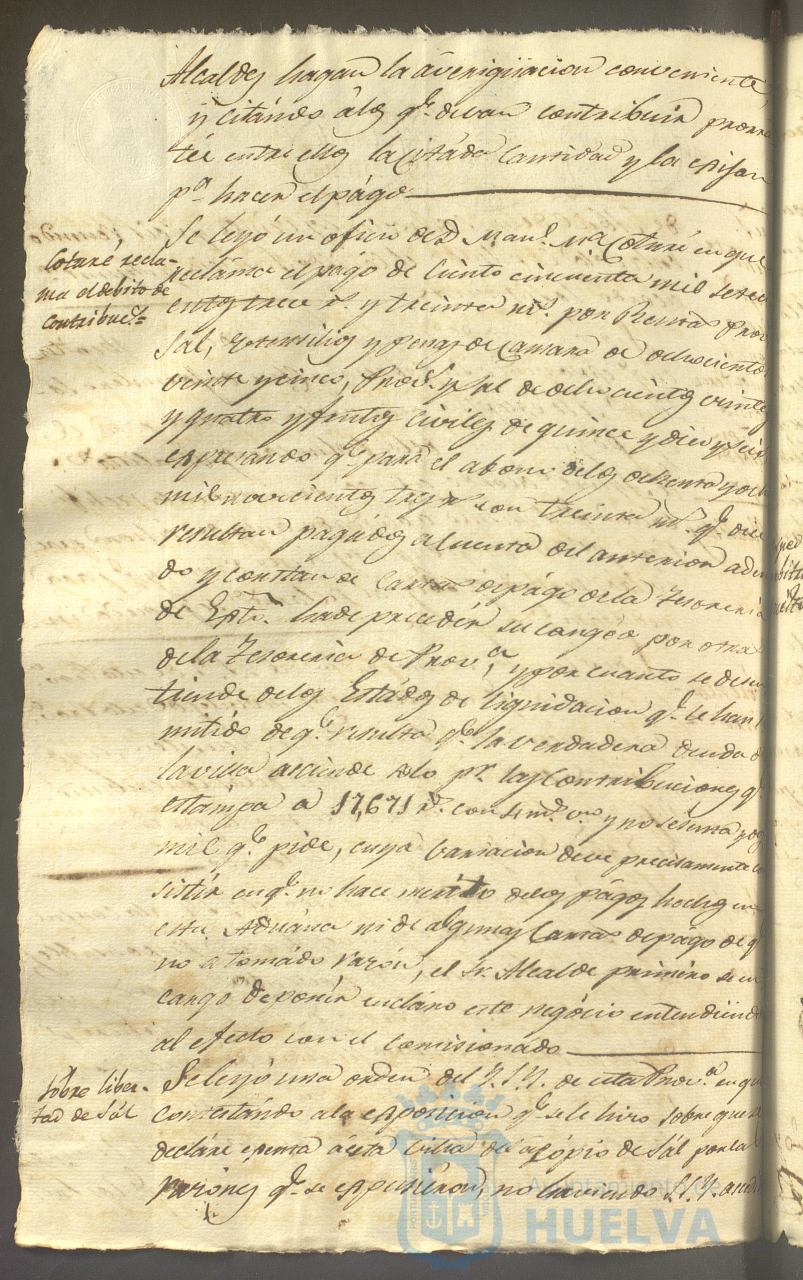 Alcaldes hagan la averiguacion conveniente
y citándo á los q.e devan contribuir prorra
téé entre ellos la citáda Cantidad y la exijan
p.a hacer el págo
Cotarré recla-
ma el debito de
Contribuc.s
Se leyó un oficio de D. Man.l M.a Cotarré en que
reclama el págo de Ciento cincuenta mil sete
cientos trece r.s y treinta m.s por Rentas Prov
sal, Utensilios y penas de Camara de ochocientos
veinte y cinco, y de ochocientos veinte
y quatro y frutos Civiles de quince y diez y seis
expresando q.e para el abono delos ochenta y och
mil novecientos tres r.s con treinta m.s q.e dice
resultan pagados a cuenta del anterior adeu
do y constan de Cartas depágo dela Tesoreria
de Exto. ha de preceder su cange por otra
dela Tesoreria de Prov.a, y por cuanto se desen
tiende delos Estádos de liquidacion q.e se han
mitido de q.e resulta q.e la verdadera deuda d
la villa asciende solo p.r las Contribuciones q.e
estámpa a 17,671 r.s con 4 m.s v.n y no sesenta y og
mil q.e pide, cuya variacion deve precisamente co
sistír en q.e no hace merito delos págos hechos en
esta Aduána ni de algunas Cartas depágo de q.e
no a tomádo razón, el Sr. Alcalde primero se en
cargo deponér en cláro este negócio entendiéndo
al efecto con el comisionado
Sobre liber-
tad de Sál
Se leyó una orden del S.S.Y. de esta Prov.a en que
contestándo ala exposicion q.e se le hizo sobre que se
decláre esenta á esta Villa del acópio de Sál por las
razónes q.e se expusiéron, no haviendo S.S.Y.
Ayuntamiento de
HUELVA